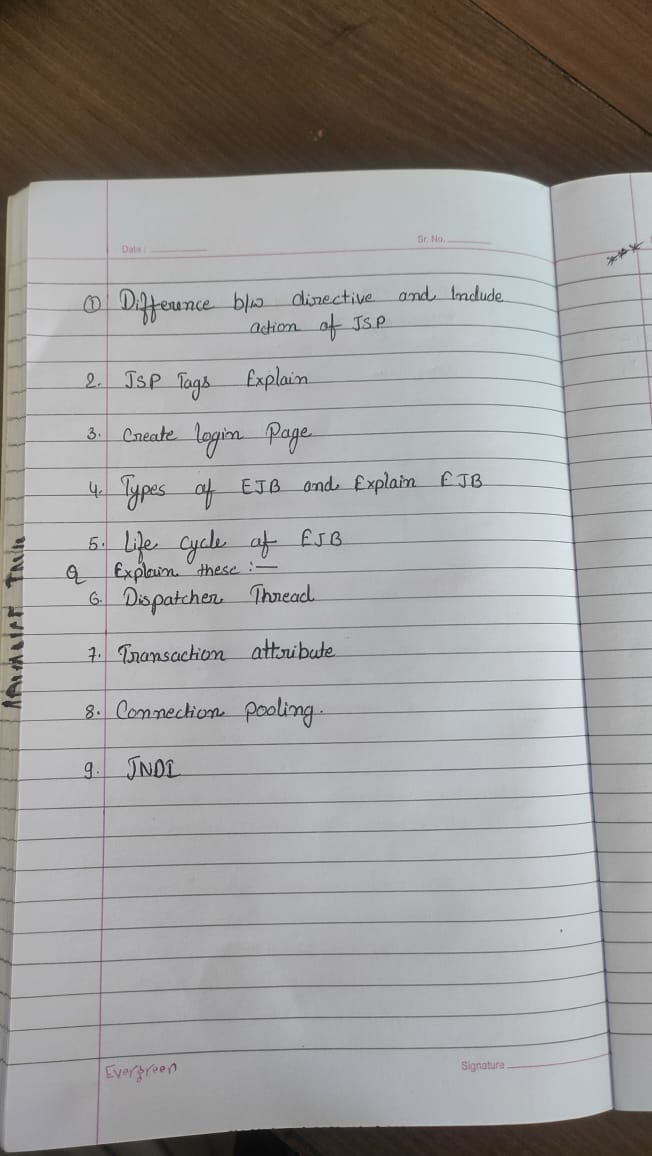 Date :
Sr. No.
***
① Difference b/w directive and Include
action of JSP
2. JSP Tags Explain
3. Create login Page
4. Types of EJB and Explain EJB
5. Life Cycle of EJB
Q Explain these :—
6. Dispatcher Thread
7. Transaction attribute
8. Connection pooling.
9. JNDI
Evergreen
Signature